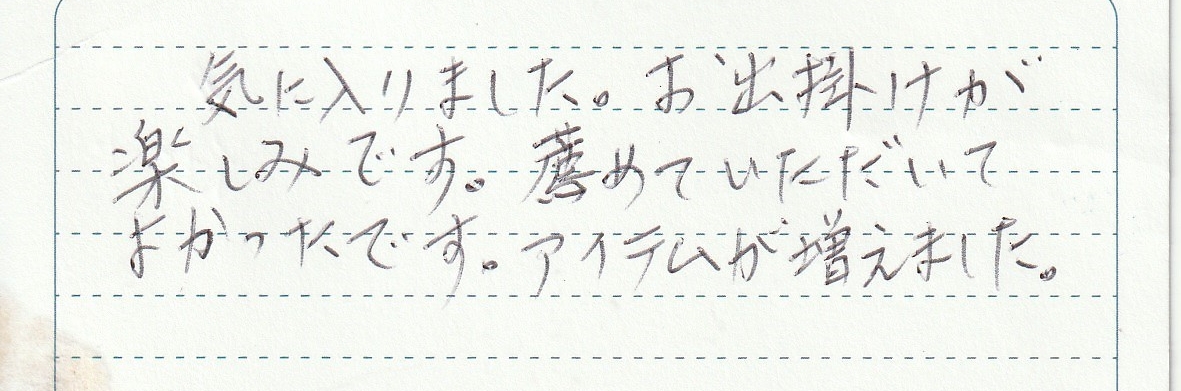 気に入りました。お出掛けが
楽しみです。薦めていただいて
よかったです。アイテムが増えました。